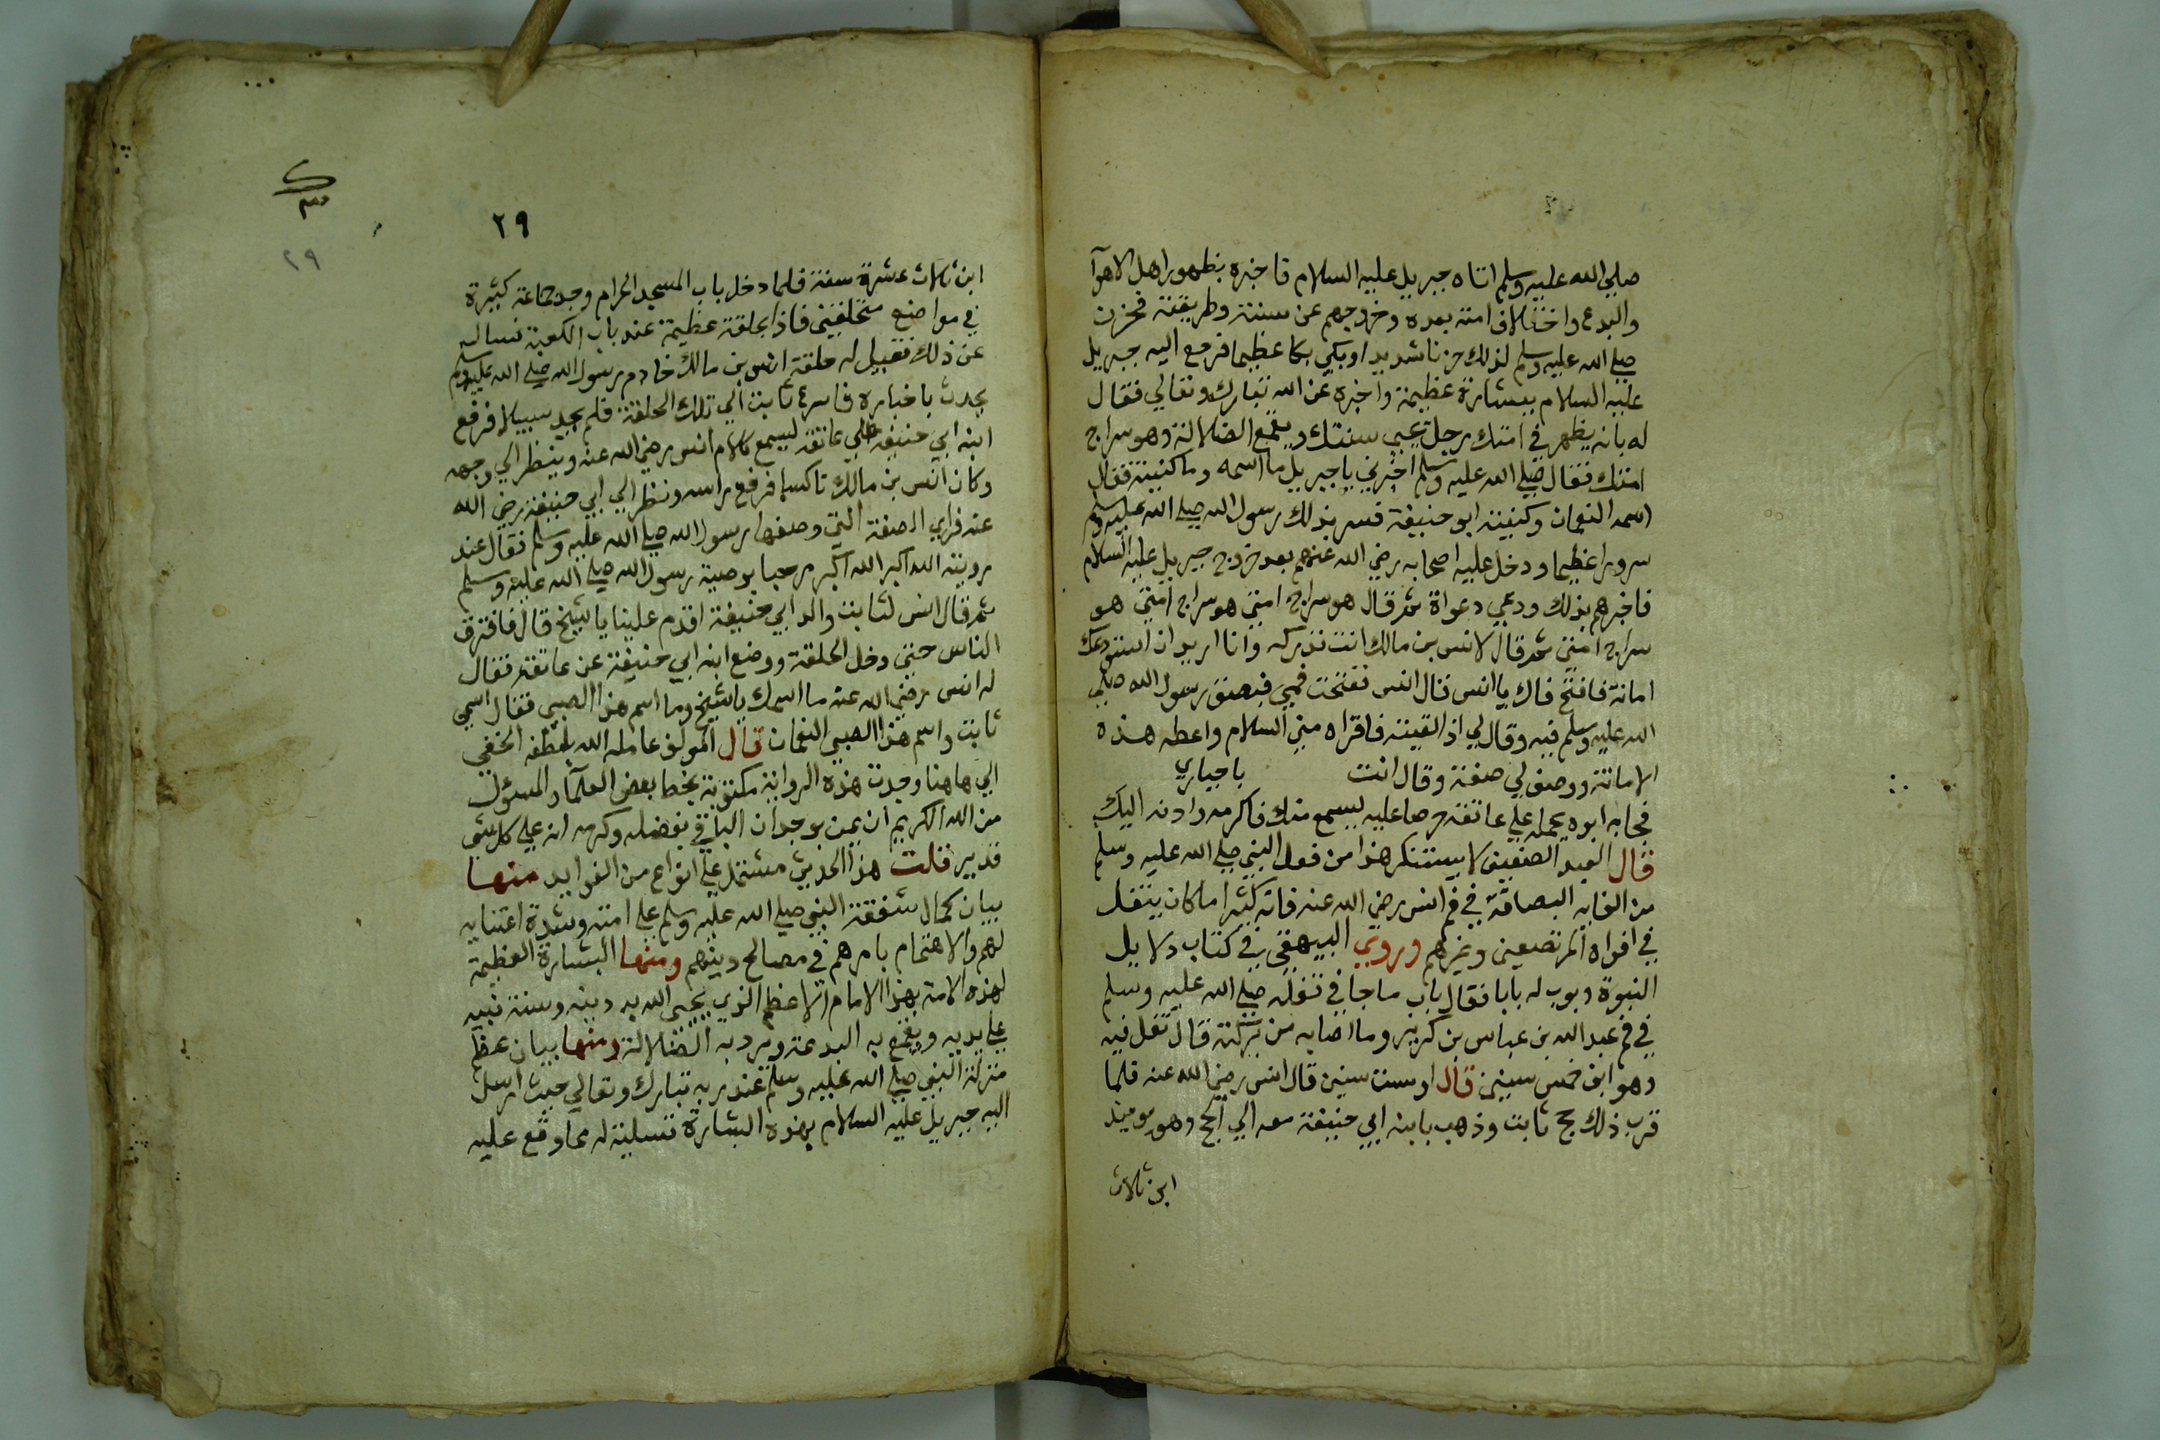 صلي الله عليه وسلم اتاه جبريل عليه السلام فاخبره بظهور اهل الاهوآ
والبدع واختلاف امته بعده وخروجهم عن سنته وطريقته فحزن
صلي الله عليه وسلم لذلك حزنا شديدا وبكي بكا عظيما فرجع اليه جبريل
عليه السلام ببشارة عظيمة واخبره عن الله تبارك وتعالي فقال
له بانه يظهر في امتك رجل يحيي سنتك ويقمع الضلالة وهو سراج
امتك فقال صلي الله عليه وسلم اخبرني يا جبريل ما اسمه وما كنيته فقال
اسمه النعمان وكنيته ابو حنيفة فسر بذلك رسول الله صلي الله عليه وسلم
سرورا عظيما ودخل عليه اصحابه رضي الله عنهم بعد خروج جبريل عليه السلام
فاخبرهم بذلك ودعي دعواة ثم قال هو سراج امتي هو سراج امتي هو
سراج امتي ثم قال لانس بن مالك انت تدركه وانا اريد ان استودعك
امانة فافتح فاك يا انس قال انس ففتحت فمي فبصق رسول الله صلي
الله عليه وسلم فيه وقال لي اذا لقيته فاقراه مني السلام واعطه هذه
الامانة ووصف لي صفته وقال انت
فجابه ابوه يحمله علي عاتقه حرصا عليه ليسمع منك فاكرمه وادنه اليك
قال العبد الضعيف لا يستنكر هذا من فعل النبي صلي الله عليه وسلم
من القايه البصاقة في فم انس رضي الله عنه فانه كثيرا ما كان يتفل
في افواه المرتضعين وغيرهم وروي البيهقي في كتاب دلايل
النبوة وبوب له بابا فقال باب ما جا في تفله صلي الله عليه وسلم
في فم عبد الله بن عباس بن كريز وما اصابه من بركته قال تفل فيه
وهو ابن خمس سنين قال او ست سنين قال انس رضي الله عنه فلما
قرب ذلك حج ثابت وذهب بابنه ابي حنيفة معه الي الحج وهو يوميذ
ابن ثلاث
٢٩
٢٩
ابن ثلاث عشرة سنة فلما دخل باب المسجد الحرام وجد جماعة كثيرة
في مواضع متحلقين فاذا بحلقة عظيمة عند باب الكعبة فسال
عن ذلك فقيل له حلقة انس بن مالك خادم رسول الله صلي الله عليه وسلم
يحدث باخباره فاسرع ثابت الي تلك الحلقة فلم يجد سبيلا فرفع
ابنه ابي حنيفة علي عاتقه ليسمع كلام انس رضي الله عنه وينظر الي وجهه
وكان انس بن مالك ناكسا فرفع راسه ونظر الي ابي حنيفة رضي الله
عنه فراي الصفة التي وصفها رسول الله صلي الله عليه وسلم فقال عند
رويته الله اكبر الله اكبر مرحبا بوصية رسول الله صلي الله عليه وسلم
ثم قال انس لثابت والد ابي حنيفة اقدم علينا يا شيخ قال فافترق
الناس حتي دخل الحلقة ووضع ابنه ابي حنيفة عن عاتقه فقال
له انس رضي الله عنه ما اسمك يا شيخ وما اسم هذا الصبي فقال اسمي
ثابت واسم هذا الصبي النعمان قال المولف عامله الله بلطفه الخفي
الي هاهنا وجدت هذه الرواية مكتوبة بخط بعض العلمآ والمسؤل
من الله الكريم ان يمن بوجدان الباقي بفضله وكرمه انه علي كل شي
قدير قلت هذا الحديث مشتمل علي انواع من الفوايد منها
بيان كمال شفقة النبي صلي الله عليه وسلم علي امته وشدة اعتنايه
لهم والاهتمام بامرهم في مصالح دينهم ومنها البشارة العظيمة
لهذه الامة بهذا الامام الاعظم الذي يحيي الله به دينه وسنة نبيه
علي يديه ويقمع به البدعة ويرد به الضلالة ومنها بيان عظم
منزلة النبي صلي الله عليه وسلم عند ربه تبارك وتعالي حيث ارسل
اليه جبريل عليه السلام بهذه البشارة تسلية له مما وقع عليه